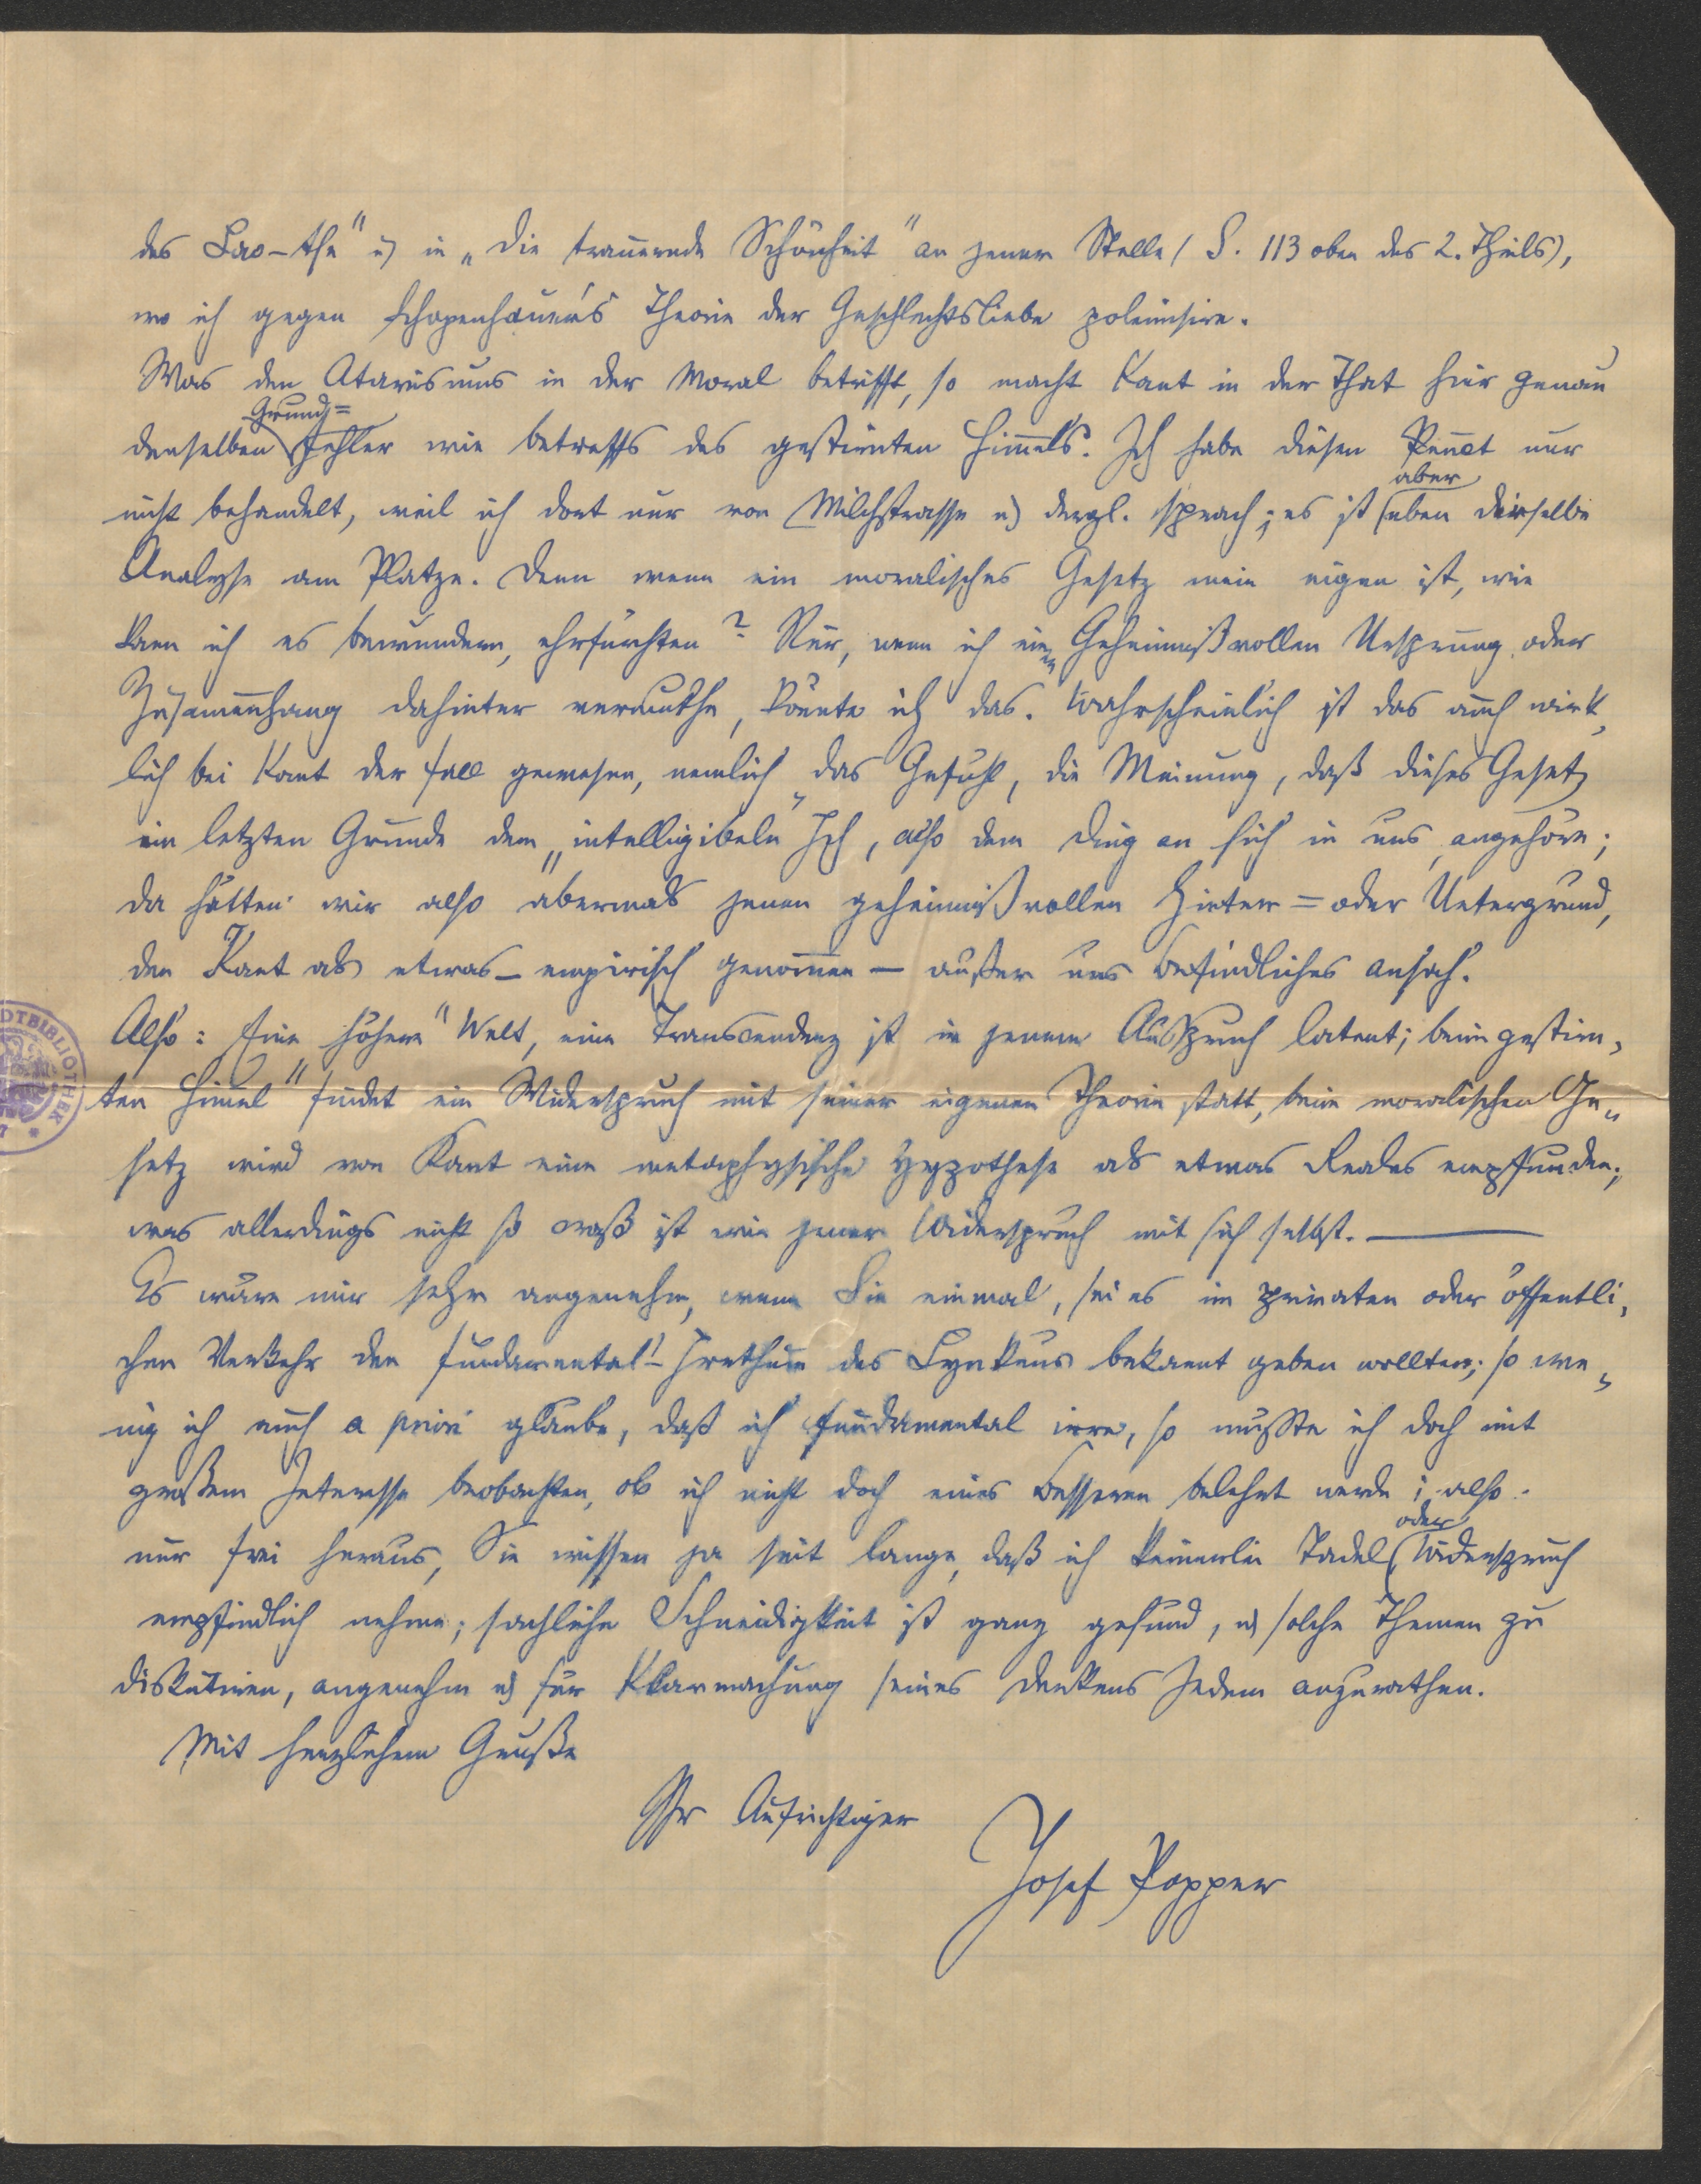 des Lao-the" u) in „Die trauernde Schönheit" an jener Stelle (S. 113 oben des 2. Theils),
wo ich gegen Schopenhauer's Theorie der Geschlechtsliebe polemisire.
Was den Atavismus in der Moral betrifft, so macht Kant in der That hier genau
Grund=
denselben Fehler wie betreffs des gestirnten Himels. Ich habe diesen Punct nur
aber
nicht behandelt, weil ich dort nur von Milchstrasse u) dergl. sprach; es ist eben dieselbe
Analyse am Platze. Denn wenn ein moralisches Gesetz mein eigen ist, wie
kan ich es bewundern, ehrfürchten? Nur, wenn ich einen Geheimnißvollen Ursprung oder
Zusamenhang dahinter vermuthe, könnte ich das. Wahrscheinlich ist das auch wirk„
lich bei Kant der Fall gewesen, nemlich das Gefühl, die Meinung, daß dieses Gesetz
im letzten Grunde dem „intelligibeln" Ich, also dem Ding an sich in uns, angehöre;
da hätten wir also abermals jenen geheimnißvollen Hinter= oder Untergrund,
den Kant als etwas – empirisch genomen – außer uns Befindliches ansah.
Also: Eine „höhere" Welt, eine Transcendenz ist in jenem Ausspruch latent; beim „gestirn„
ten Himel" findet ein Widerspruch mit seiner eigenen Theorie statt, beim moralischen Ge„
setz wird von Kant eine metaphysische Hypothese als etwas Reales empfunden;
was allerdings nicht so craß ist wie jener Widerspruch mit sich selbst. —
Es wäre mir sehr angenehm, wenn Sie einmal, sei es im privaten oder öffentli„
chen Verkehr den Fundamental-Irrthum des Lynkeus bekannt geben wollten; so we„
nig ich auch a priori glaube, daß ich fundamental irre, so müsste ich doch mit
großem Interesse beobachten, ob ich nicht doch eines Besseren belehrt werde; also
oder
nur frei heraus, Sie wissen ja seit lange, daß ich keinerlei Tadel Widerspruch
empfindlich nehme; sachliche Schneidigkeit ist ganz gesund, u) solche Themen zu
diskutiren, angenehm u) für Klarmachung seines Denkens Jedem anzurathen.
Mit herzlichem Gruße
Ihr Aufrichtiger
Josef Popper